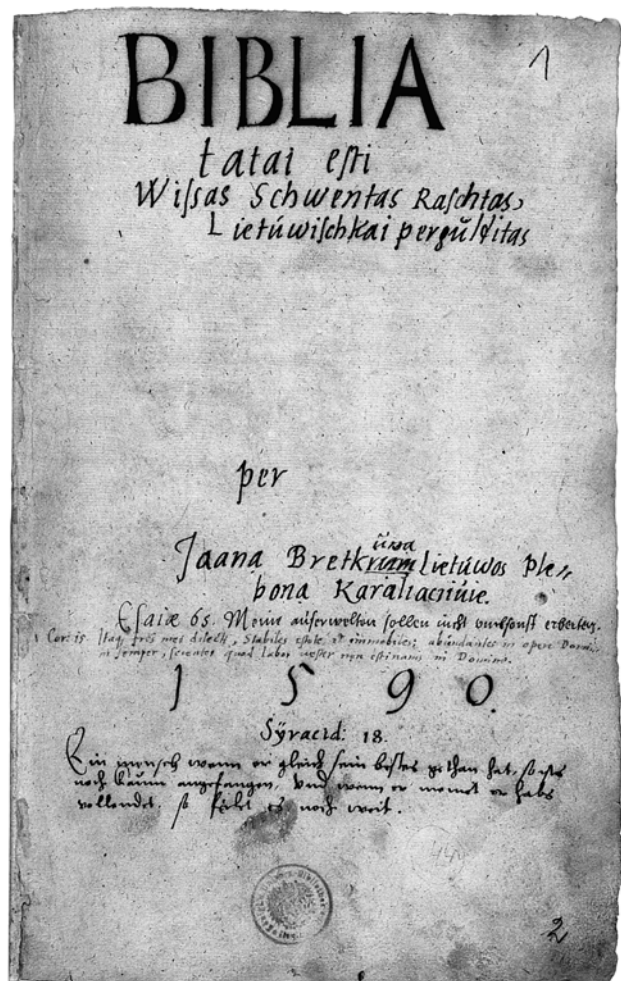 1
BIBLIA
tatai eſti
Wiſſas Schwentas Raſchtas,
Lietúwiſchkai pergulditas
per
ûṅa
Jaana Bretkrium Lietúwos Ple⸗
bona Karaliacriúie.
Eſaiæ 65. Meine auſerwelten ſollen nicht vmbſonſt erbeiten.
Cor: 15. Itaq; frēs mei dilecti, Stabiles eſtote, et immobiles; abúndantes in opere Domini
ſemper, ſcientes quod labor veſter non eſt inanis in Domino.
1 5 9 0.
Sÿracid: 18.
Ein menſch wenn er gleich ſein beſtes gethan hat, ſo iſts
noch kaum angefangen, Vnd wenn er meinet er habs
vollendet, ſo feilet es noch weit.
2